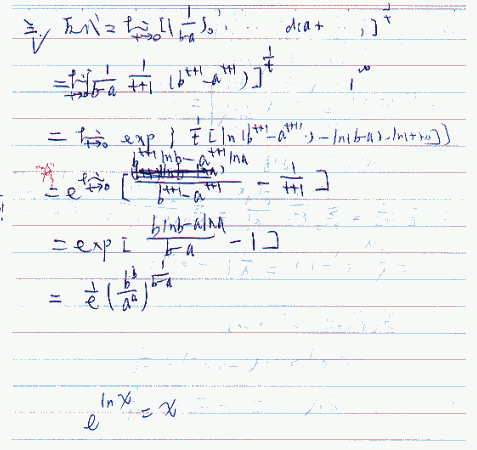 = lim t→0 [ 1/(b-a) 1/(t+1) (b^(t+1) - a^(t+1)) ]^(1/t)
= lim t→0 exp { 1/t [ ln(b^(t+1) - a^(t+1)) - ln(b-a) - ln(t+1) ] }
= e^(lim t→0) [ (b^(t+1) ln b - a^(t+1) ln a)/(b^(t+1) - a^(t+1)) - 1/(t+1) ]
= exp [ (b ln b - a ln a)/(b-a) - 1 ]
= 1/e (b^b/a^a)^(1/(b-a))
e^(ln x) = x